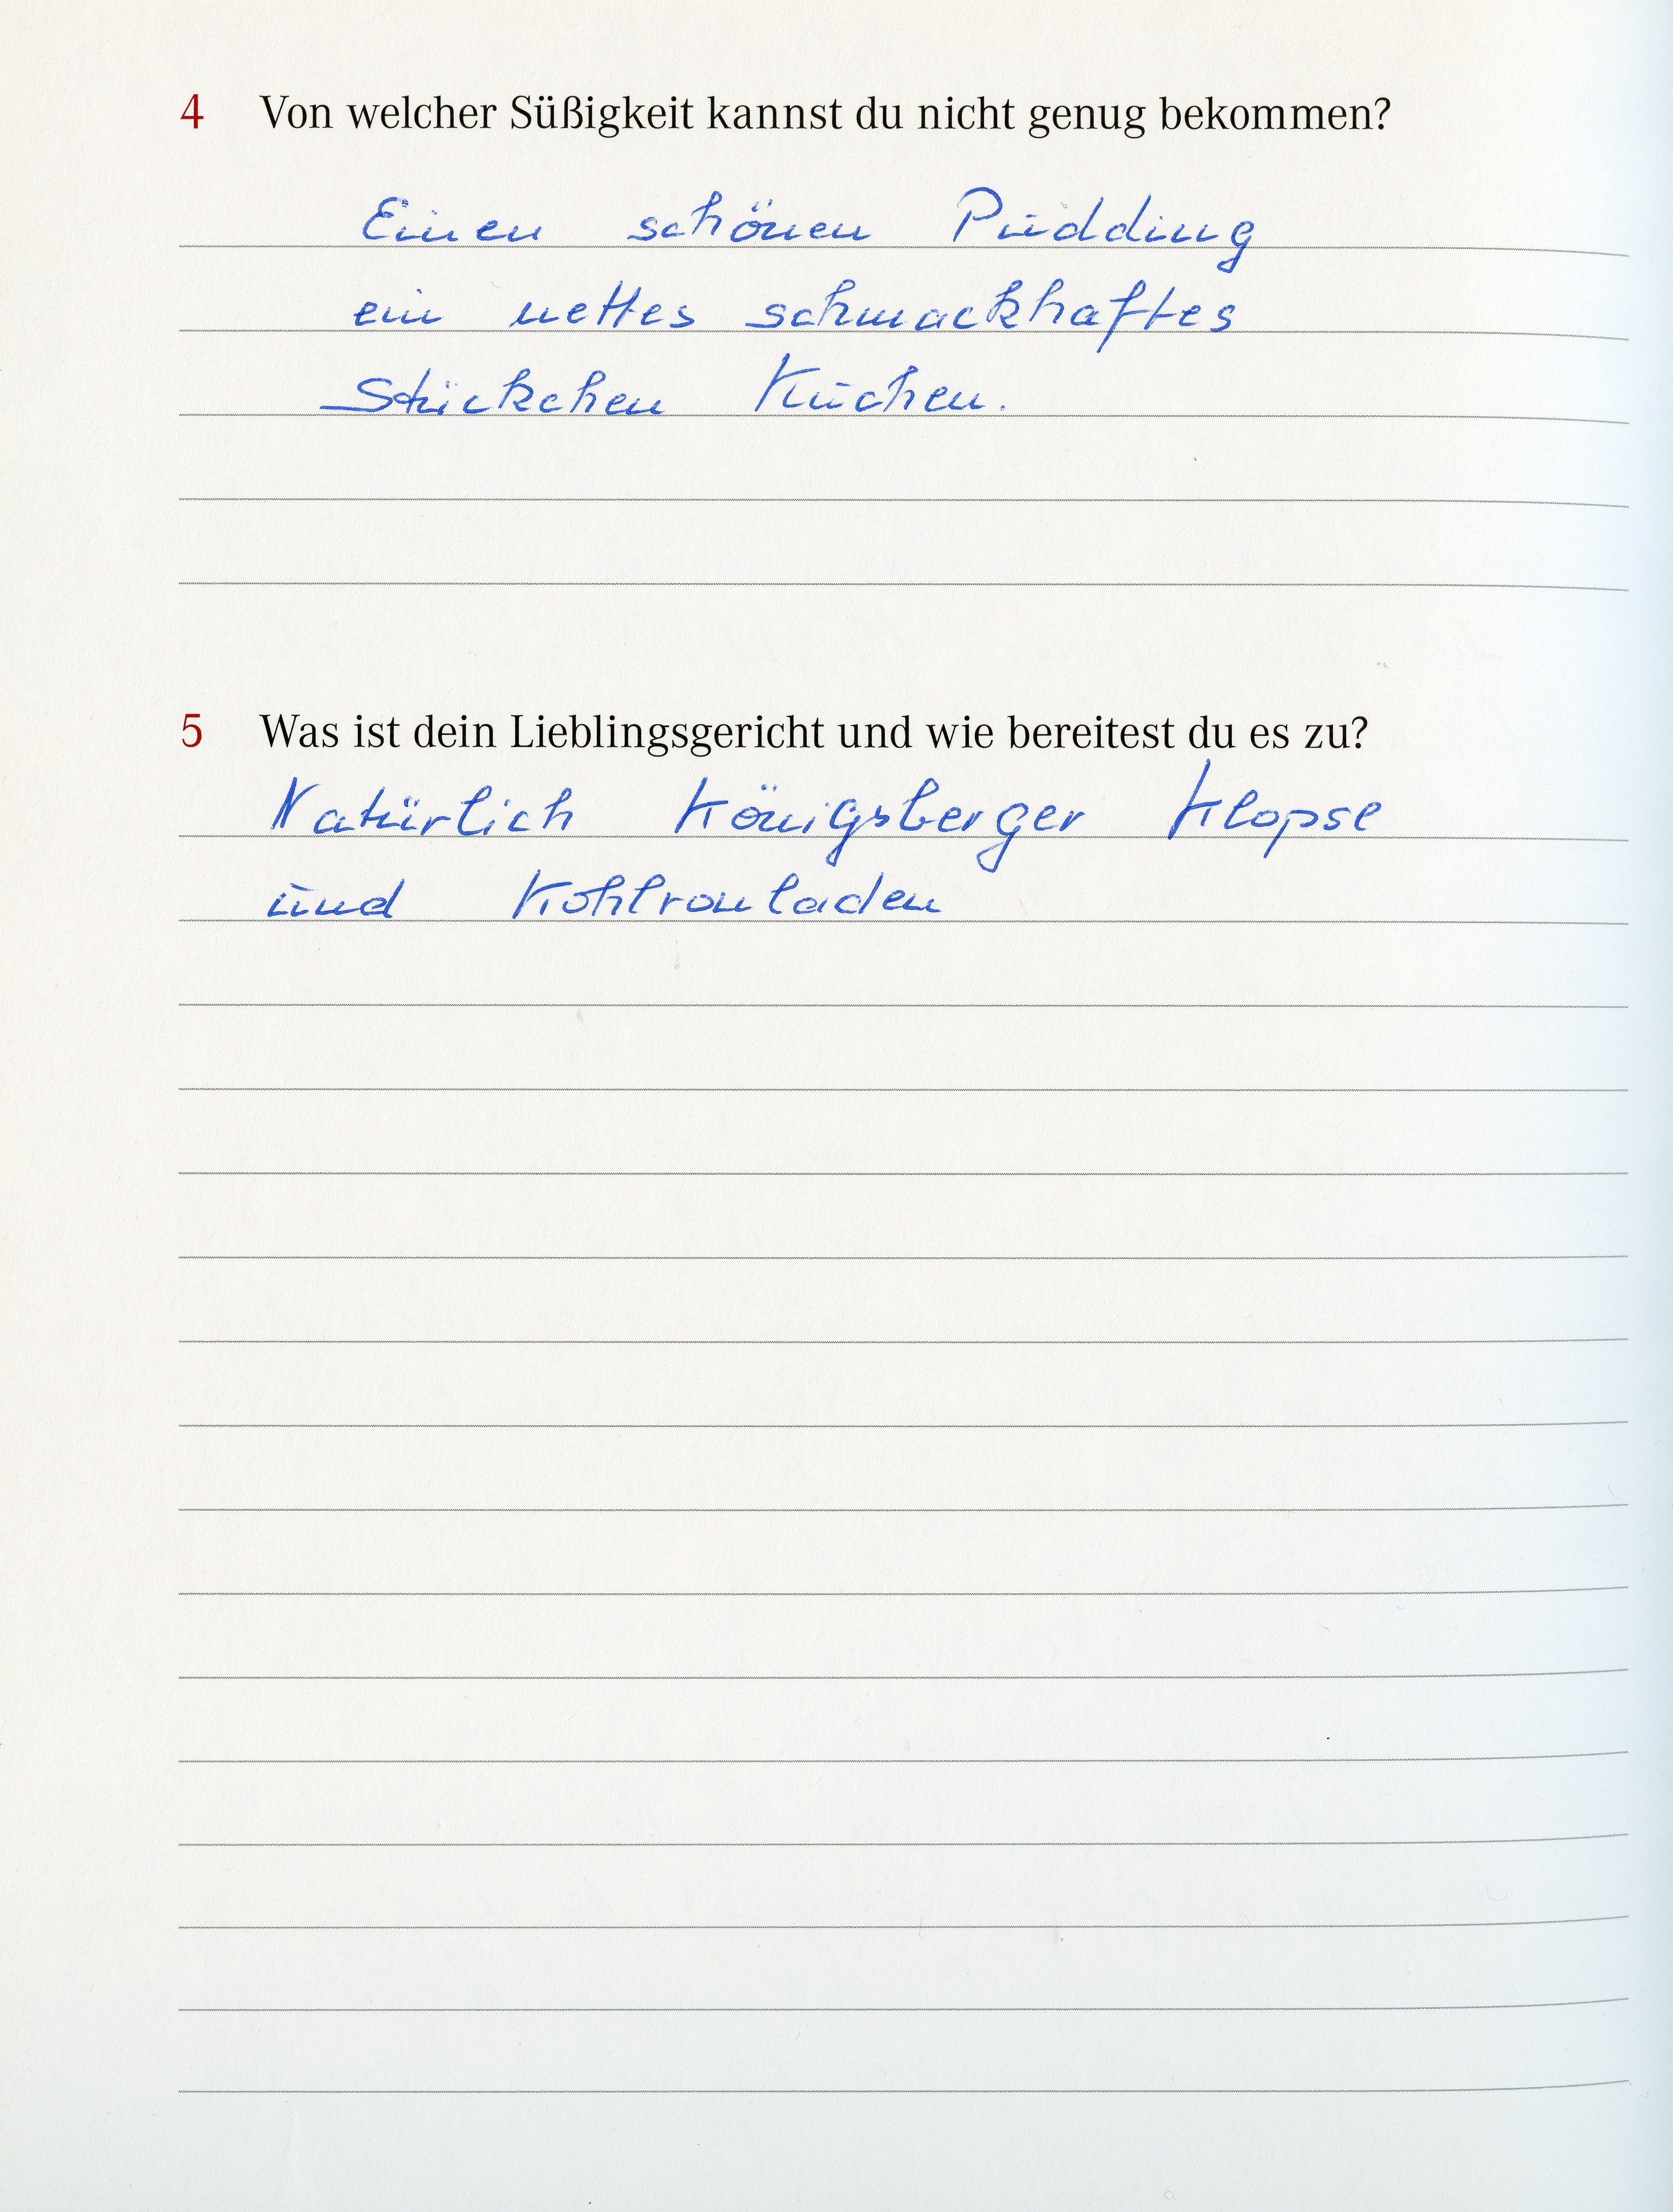 4 Von welcher Süßigkeit kannst du nicht genug bekommen?
Einen schönen Pudding
ein nettes schmackhaftes
Stückchen Kuchen.
5 Was ist dein Lieblingsgericht und wie bereitest du es zu?
Natürlich Königsberger Klopse
und Kohlrouladen